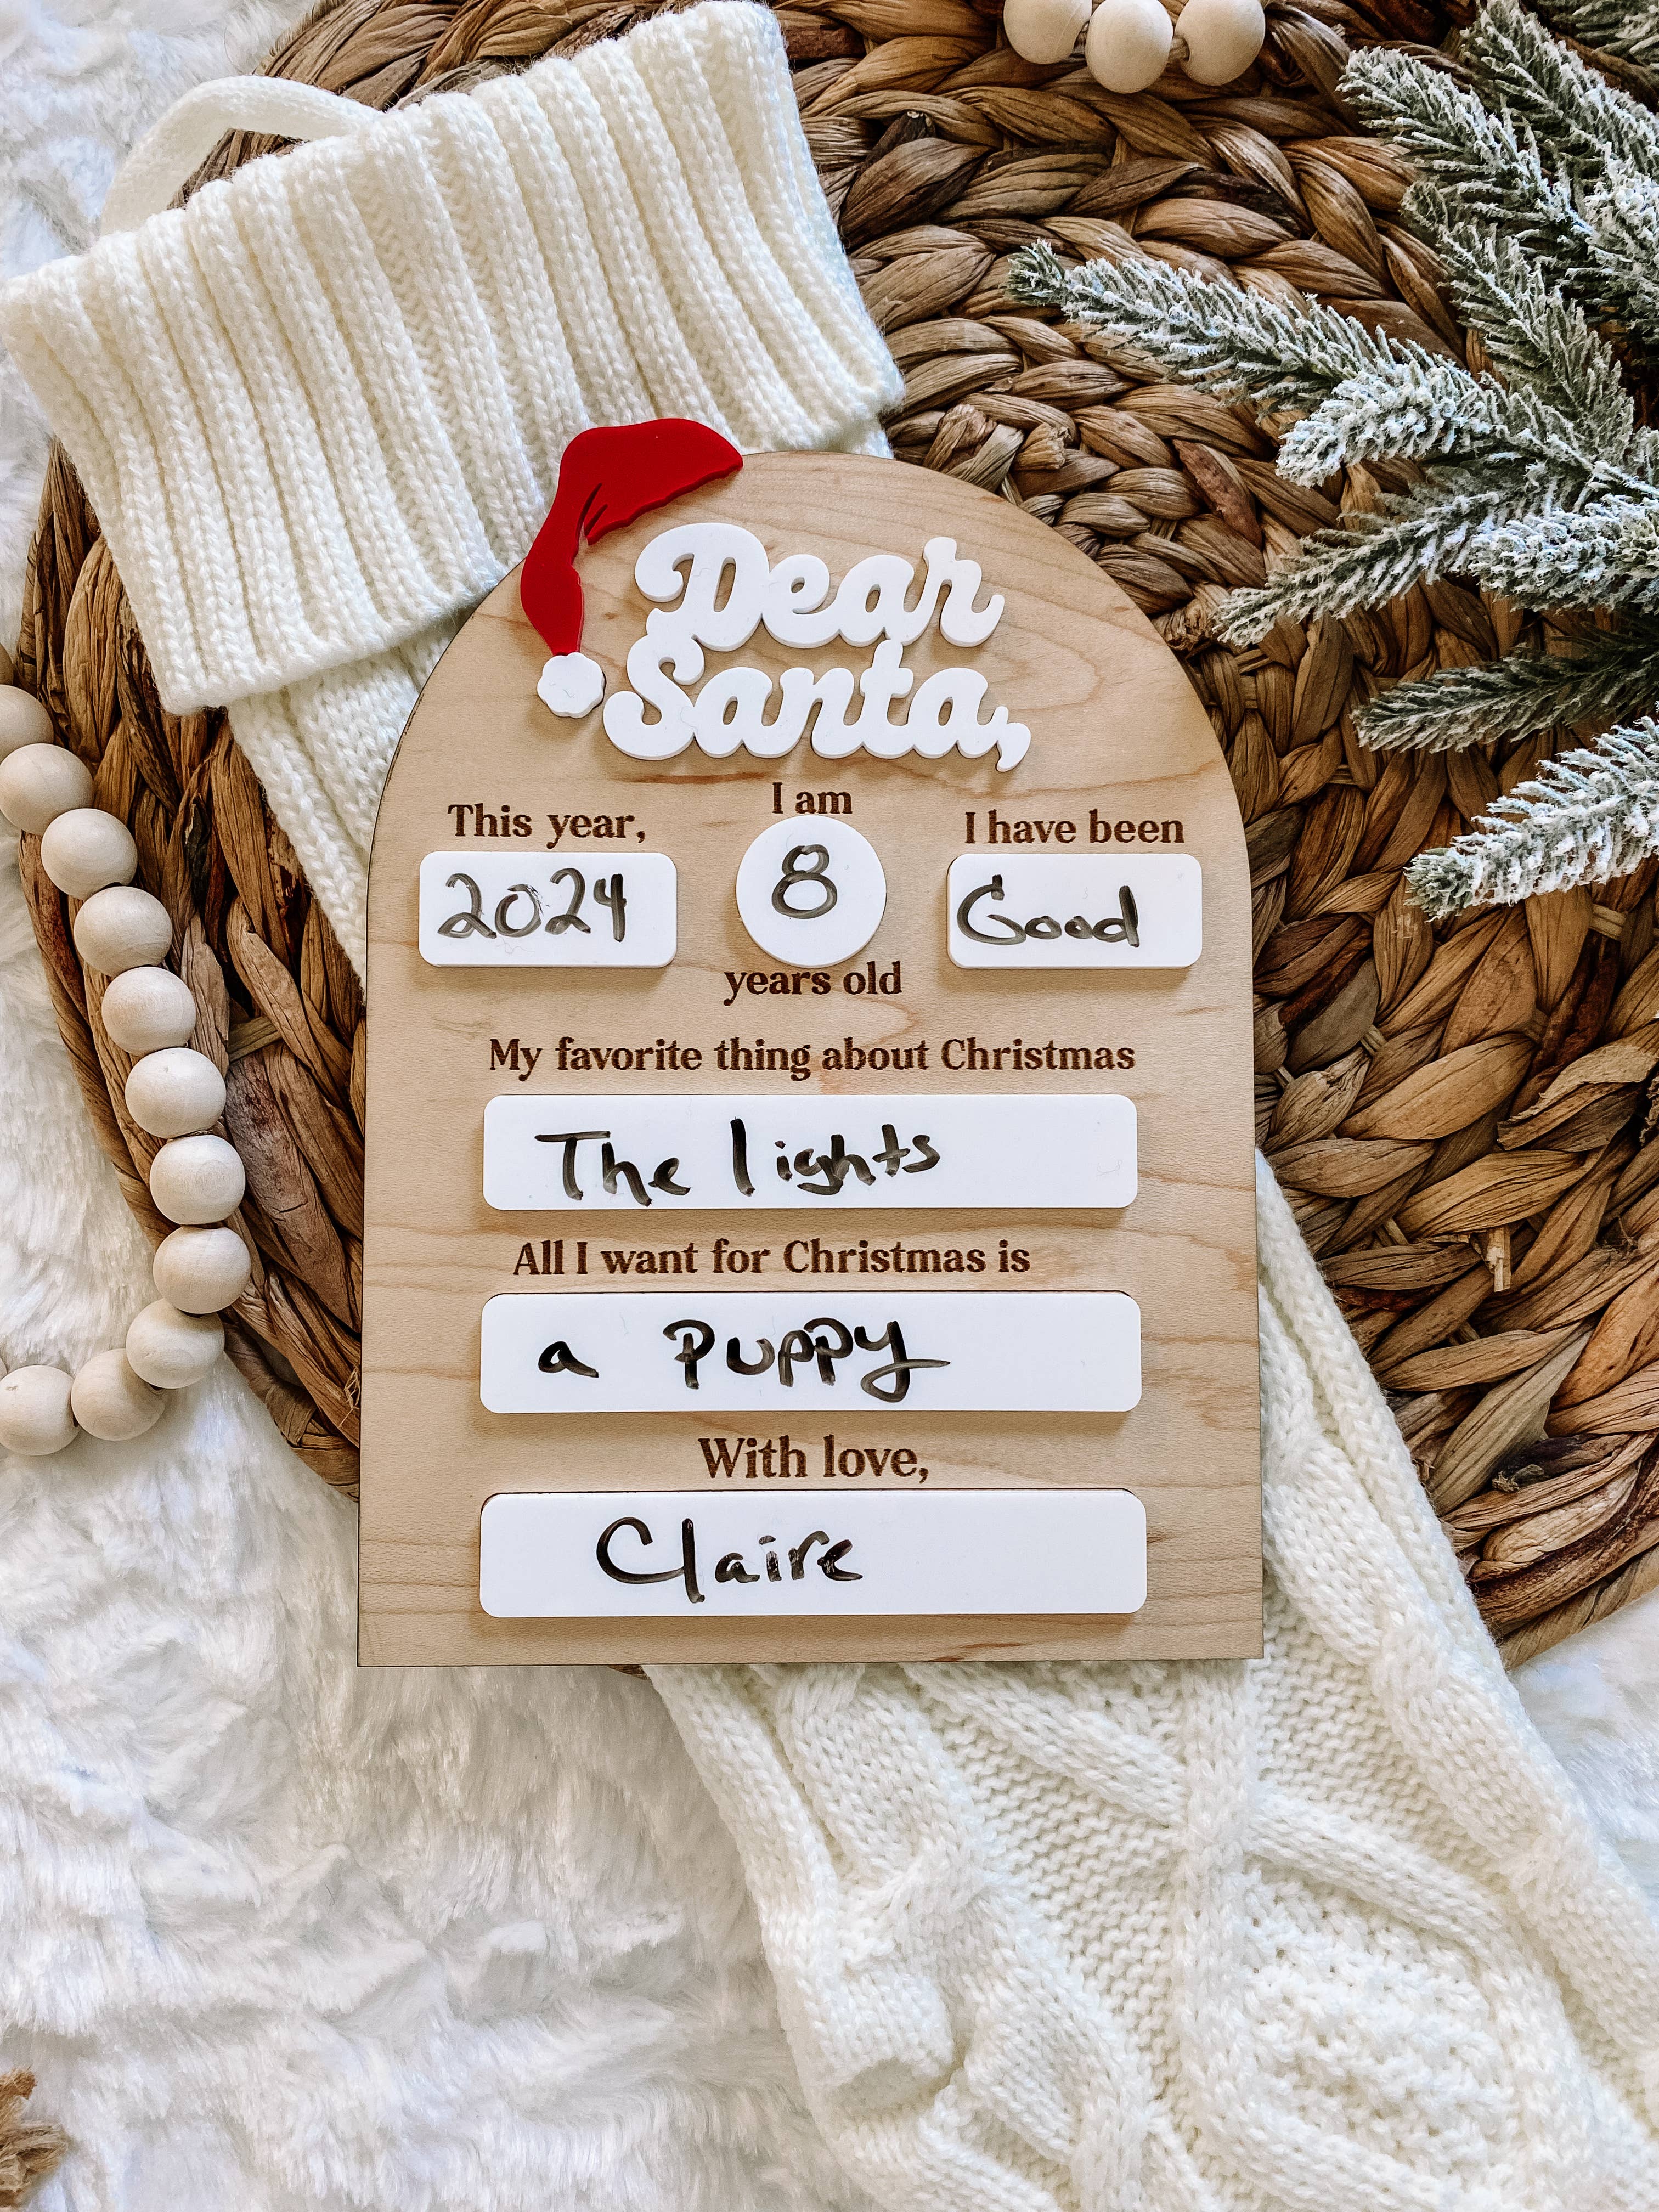 Dear
Santa,
This year, I am I have been
2024 8 Good
years old
My favorite thing about Christmas
The lights
All I want for Christmas is
a Puppy
With love,
Claire